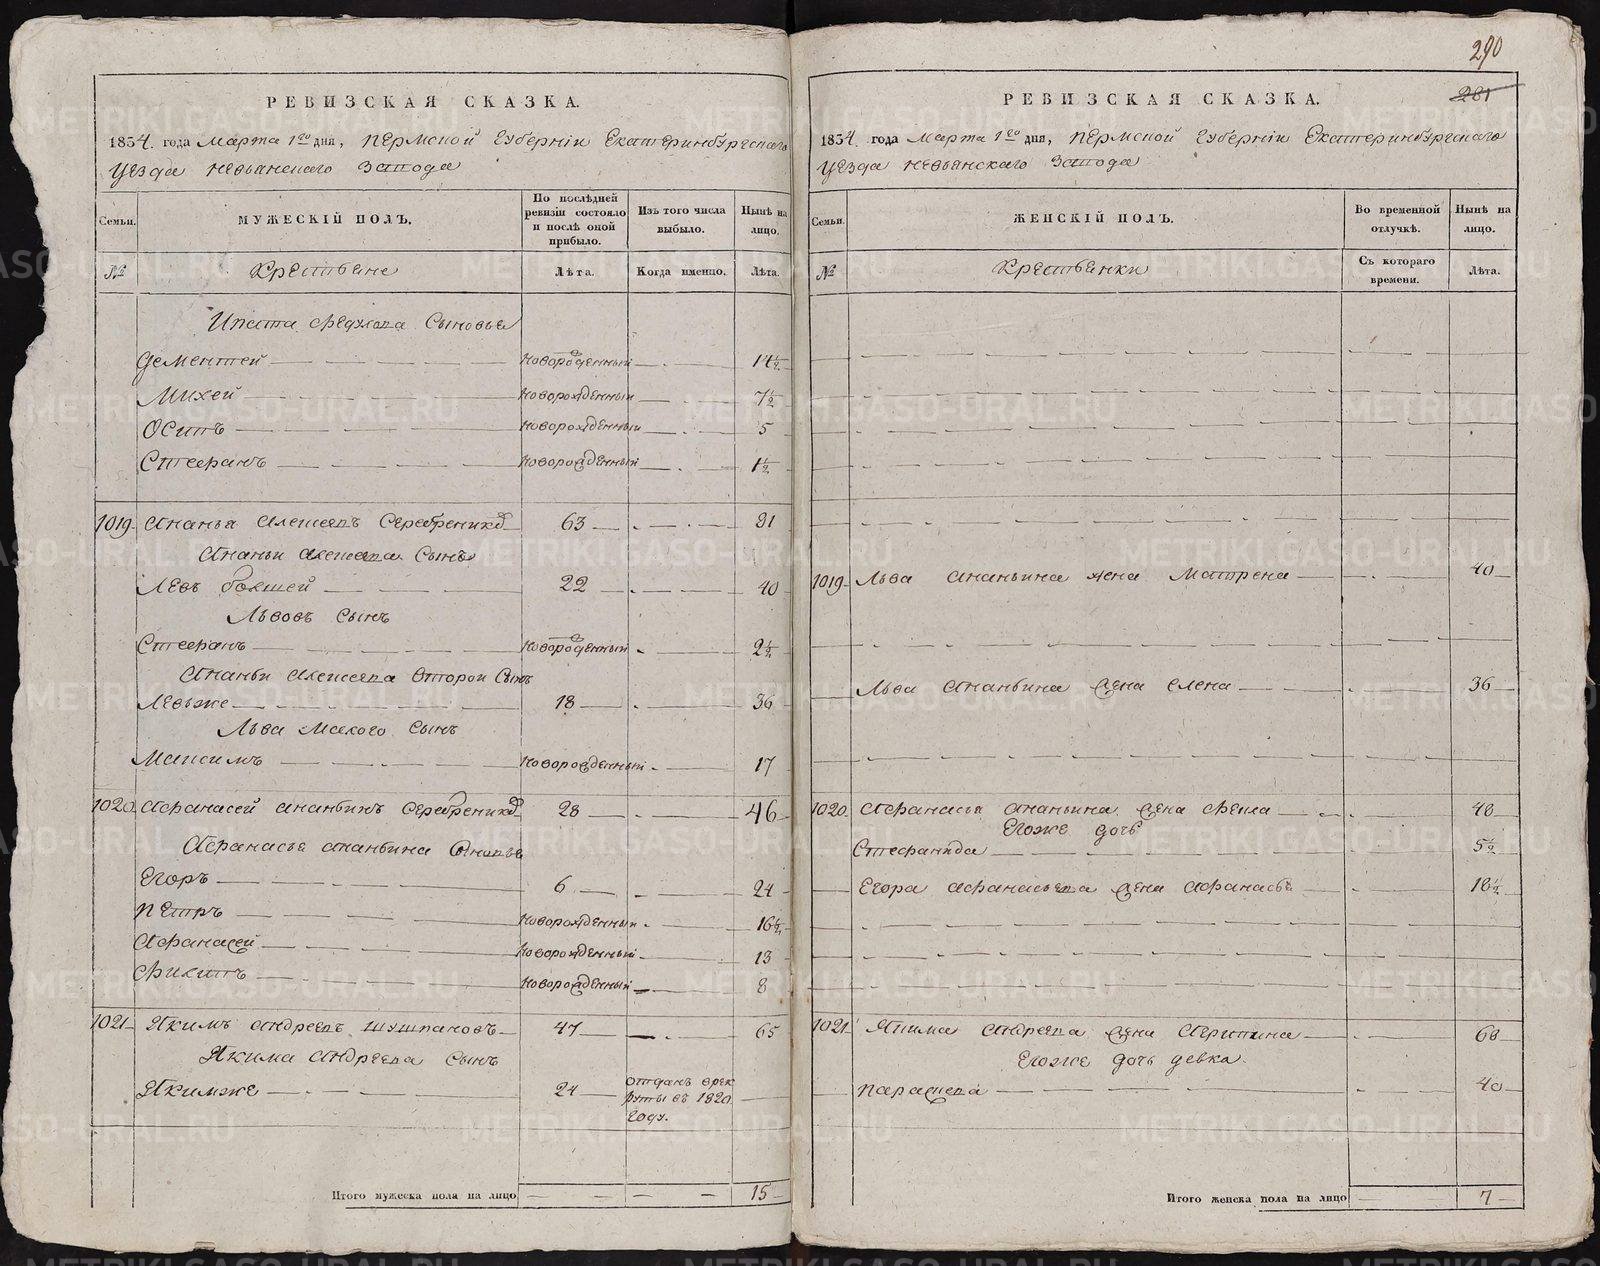 290
281
РЕВИЗСКАЯ СКАЗКА.
1834. года Марта 1го дня, Пермской Губернiи Екатеринбургскаго
Уезда Невьянскаго Завода
Семьи.
МУЖЕСКІЙ ПОЛЪ.
По послѣдней ревизіи состояло и послѣ оной прибыло.
Изъ того числа выбыло.
Нынѣ на лицо.
№
Крестьяне
Лѣта.
Когда именно.
Лѣта.
Ипата Федулова Сыновье
Дементей Новорожденный 14½
Михей Новорожденный 7½
Осипъ Новорожденный 5
Стефанъ Новорожденный 1½
1019 Ананья Алексеевъ Серебрениковъ 63 81
Ананьи Алексеева Сынъ
Левъ большей 22 40
Львовъ Сынъ
Стефанъ Новорожденный 2½
Ананьи Алексеева второй Сынъ
Левъже 18 36
Льва Малого Сынъ
Максимъ Новорожденный 17
1020 Афанасей Ананьинъ Серебрениковъ 28 46
Афанасье Ананьина Сыновье
Егоръ 6 24
Петръ Новорожденный 16½
Афанасей Новорожденный 13
Филипъ Новорожденный 8
1021 Якимъ Андреевъ Шушпановъ 47 65
Якима Андреева Сынъ
Якимже 24 отданъ врек
руты въ 1820
Году.
Итого мужеска пола на лицо 15
РЕВИЗСКАЯ СКАЗКА.
1834. года Марта 1го дня, Пермской Губернiи Екатеринбургскаго
Уезда Невьянскаго Завода
Семьи.
ЖЕНСКІЙ ПОЛЪ.
Во временной отлучкѣ.
Нынѣ на лицо.
№
Крестьянки
Съ котораго времени.
Лѣта.
1019 Льва Ананьина жена Матрена 40
Льва Ананьина жена Елена 36
1020 Афанасья Ананьина жена Фекла 48
Егоже дочь
Стефанида 5½
Егора Афанасьева жена 18½
1021 Якима Андреева жена Агрипина 68
Егоже дочь девка
Парасцева 40
Итого женска пола на лицо 7